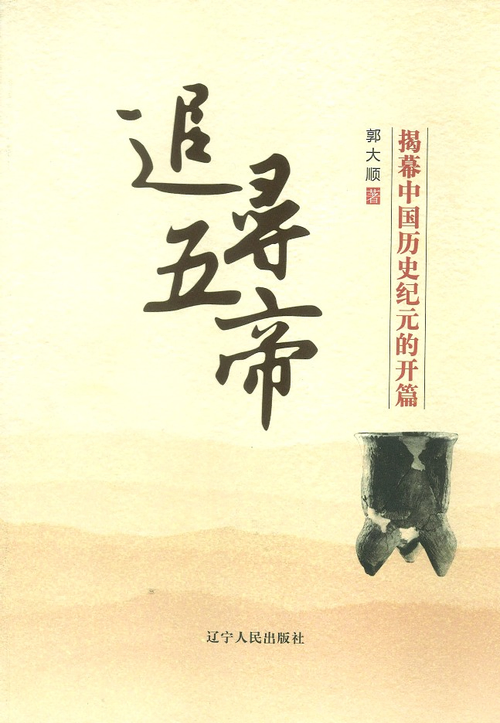 追寻五帝
揭幕中国历史纪元的开篇
郭大顺 著
辽宁人民出版社